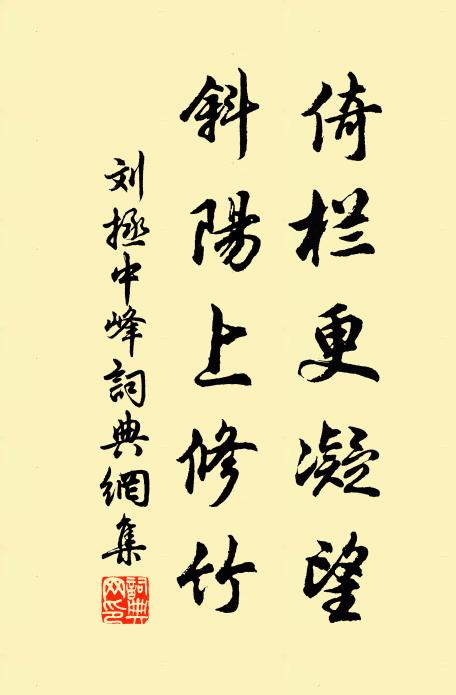 倚栏更凝望
斜陽上修竹
刘拯中峰詞典網集
詞典
网印